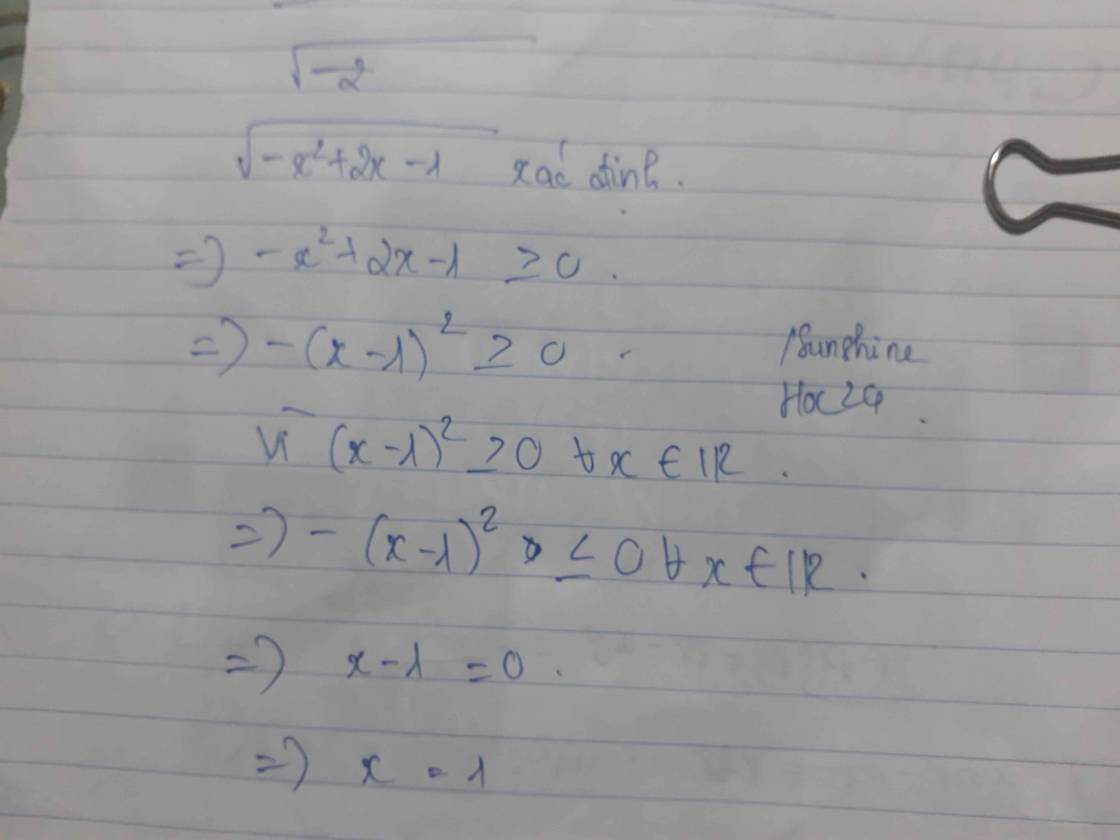 √-2
√-x²+2x-1 xác định.
=) -x²+2x-1 ≥ 0.
=) -(x-1)² ≥ 0.
/Sunshine
Hoc24.
Vì (x-1)² ≥ 0 ∀x ∈ IR.
=) -(x-1)² ≤ 0 ∀x ∈ IR.
=) x-1 = 0.
=) x = 1